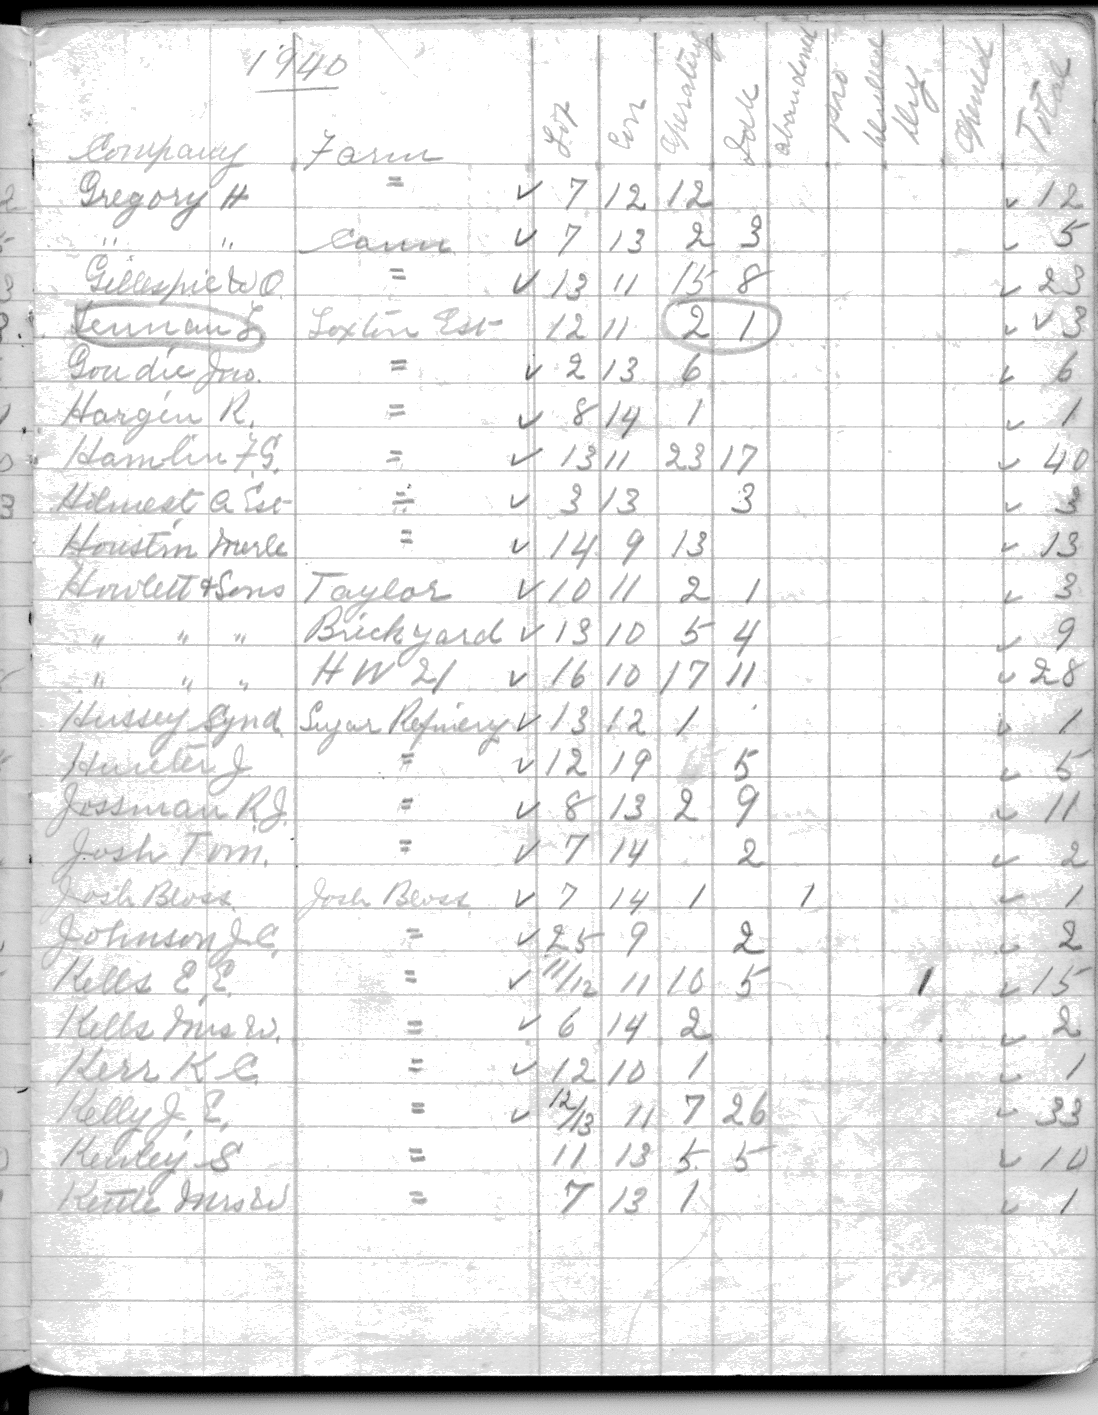 1940
Company Farm Lot Con Operating Idle abandoned pro duction Dry Opened Total
Gregory H = ✓ 7 12 12 ✓ 12
" " Cann ✓ 7 13 2 3 ✓ 5
Gillespie W O. = ✓ 13 11 15 8 ✓ 23
Lennan L. Loxton Est 12 11 2 1 ✓ ✓ 3
Goudie Jno. = ✓ 2 13 6 ✓ 6
Hargin R. = ✓ 8 14 1 ✓ 1
Hamlin F.G. = ✓ 13 11 23 17 ✓ 40
A Est = ✓ 3 13 3 ✓ 3
Houston Merle = ✓ 14 9 13 ✓ 13
Howlett & Sons Taylor ✓ 10 11 2 1 ✓ 3
" " " Brickyard ✓ 13 10 5 4 ✓ 9
" " " H W 21 ✓ 16 10 17 11 ✓ 28
Hussey Synd. Sugar Refinery ✓ 13 12 1 ✓ 1
Hunter J = ✓ 12 19 5 ✓ 5
Jossman R.J. = ✓ 8 13 2 9 ✓ 11
Josh Tom. = ✓ 7 14 2 ✓ 2
Josh Bloss. Josh Bloss. ✓ 7 14 1 1 ✓ 1
Johnson J.C. = ✓ 25 9 2 ✓ 2
Kells E E. = ✓ 11/12 11 10 5 1 ✓ 15
Kells Mrs W. = ✓ 6 14 2 ✓ 2
Kerr K C. = ✓ 12 10 1 ✓ 1
Kelly J. E. = ✓ 12/13 11 7 26 ✓ 33
Kerley S = 11 13 5 5 ✓ 10
Kettle Mrs W = 7 13 1 ✓ 1